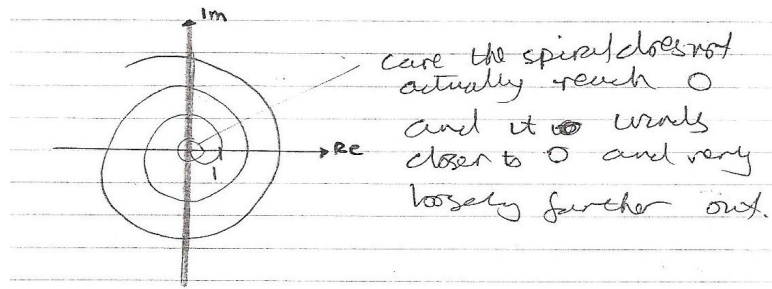 Im
care the spiral does not
actually reach 0
and it winds
closer to 0 and very
loosely further out.
Re
1